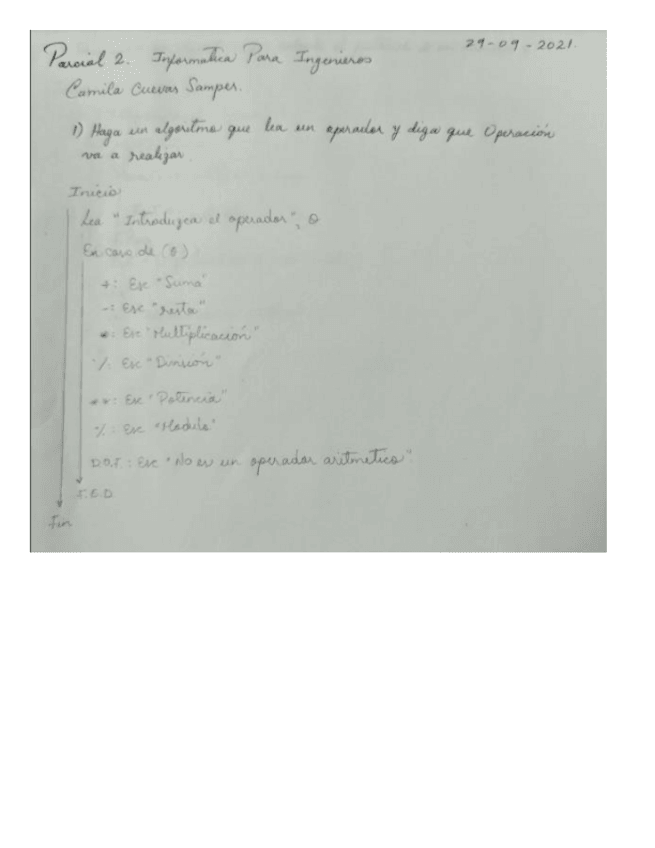 29-09-2021.
Parcial 2. Informatica Para Ingenieros
Camila Cuevas Samper.
1) Haga un algoritmo que lea un operador y diga que Operación
va a realizar.
Inicio:
Lea "Introduzca el operador", O
En caso de (O)
+: Esc "Suma"
-: Esc "resta"
*: Esc "Multiplicación"
/: Esc "División"
**: Esc "Potencia"
%: Esc "Modulo"
D.O.F: Esc "No es un operador aritmetico"
F.E.D
Fin